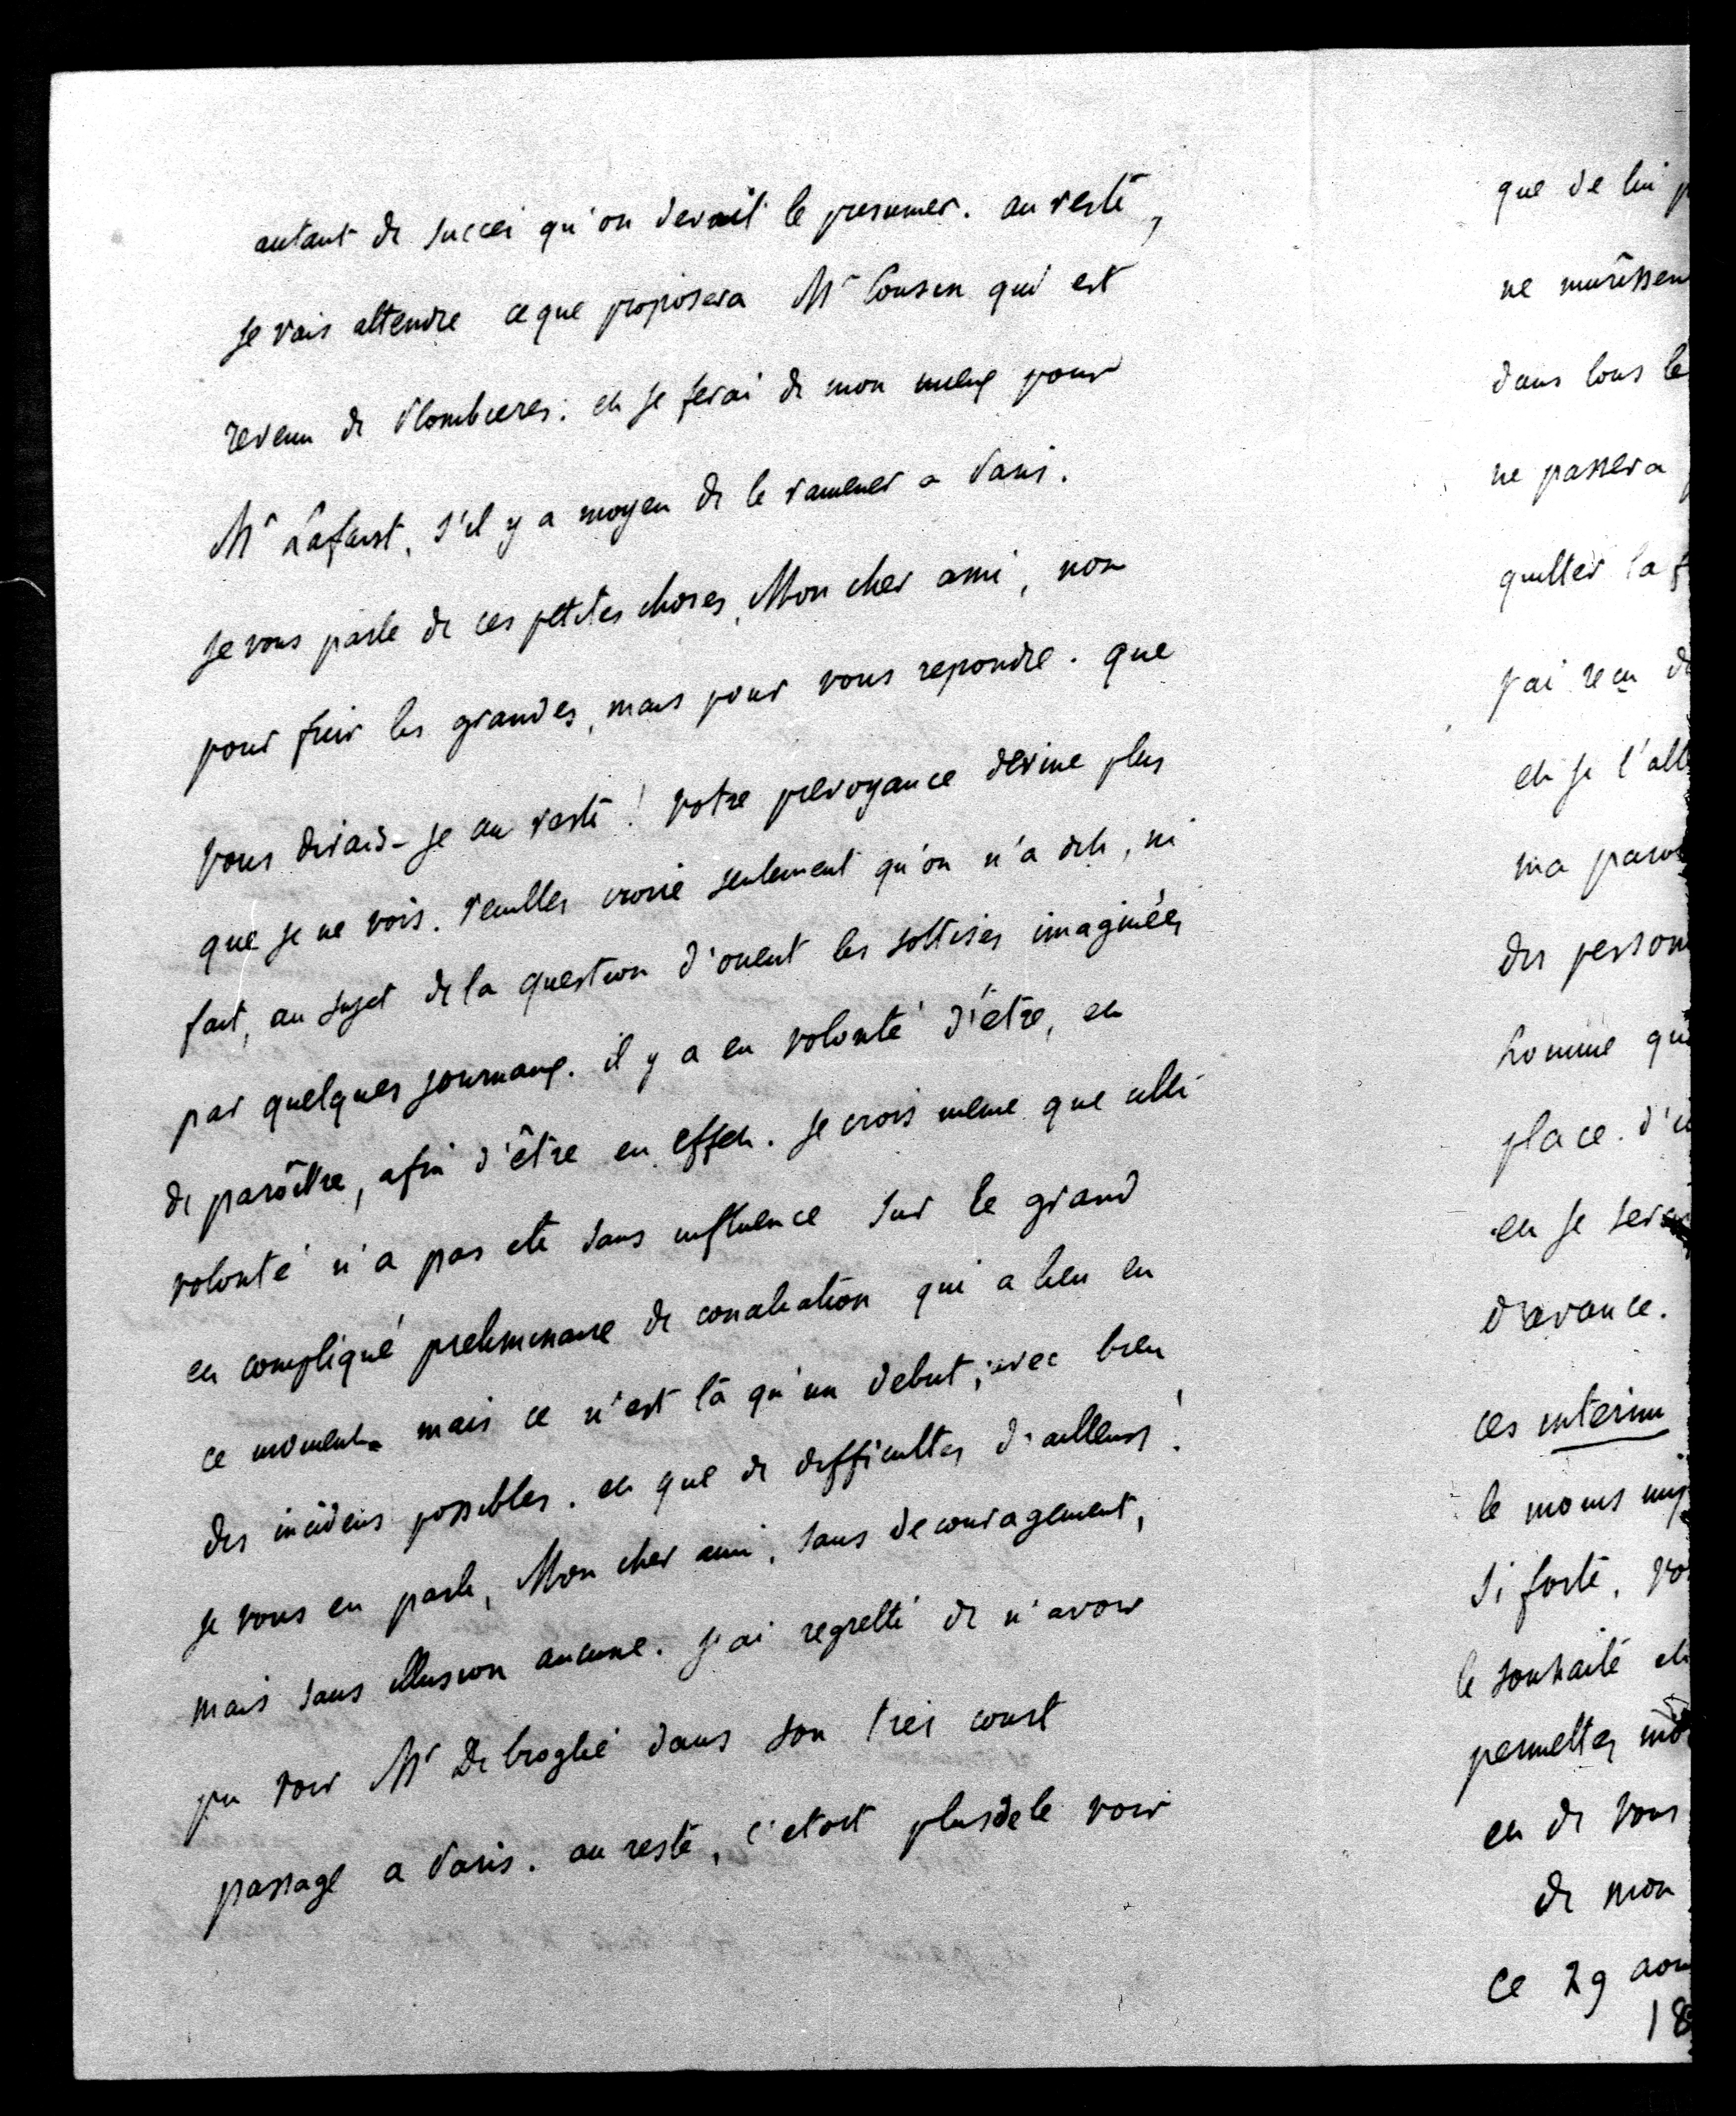 autant de succès qu'on devait le presumer. au reste,
je vais attendre ce que proposera Mr Cousin qui est
revenu de Plombieres. et je ferai de mon mieux pour
Mr Lafaist, s'il y a moyen de le ramener a Paris.
je vous parle de ces petites choses, Mon cher ami, non
pour fuir les grandes, mais pour vous repondre. que
vous dirais-je au reste! votre prevoyance devine plus
que je ne vois. veuillez croire seulement qu'on n'a dit, ni
fait, au sujet de la question d'orient les sottises imaginées
par quelques journaux. il y a eu volonté d'être, et
de paroître, afin d'être en effet. je crois même que cette
volonté n'a pas été sans influence sur le grand
et compliqué preliminaire de conciliation qui a lieu en
ce moment. mais ce n'est là qu'un debut, avec bien
des incidens possibles. et que de difficultés d'ailleurs!
je vous en parle, Mon cher ami, sans decouragement,
mais sans illusion aucune. j'ai regretté de n'avoir
pu voir Mr De broglie dans son très court
passage a Paris. au reste, c'etoit plus de le voir
que de lui
ne
dans tous le
ne passera
quitter la
j'ai reçu
et je l'
ma
des person
homme
place.
et je
d'avance.
ces interim
le moins
si forte,
le souhaite et
permettez
et de vous
de mon
ce 29
18